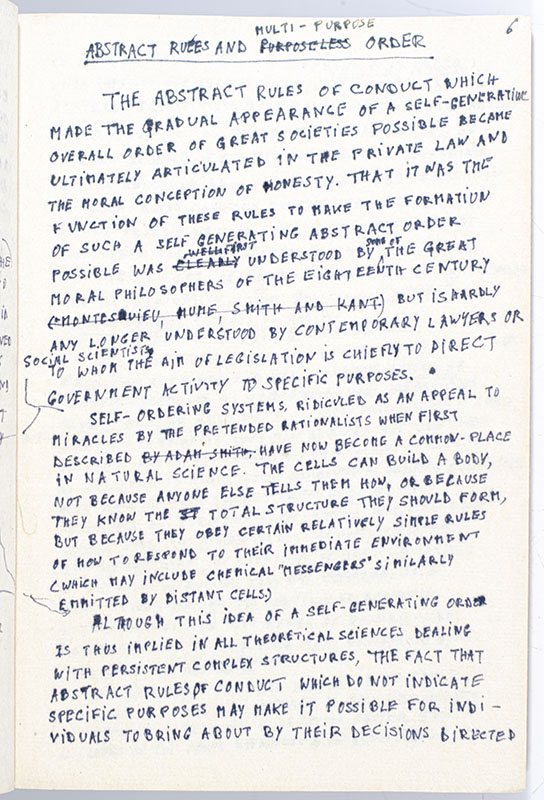 6
MULTI-PURPOSE
ABSTRACT RULES AND PURPOSELESS ORDER
THE ABSTRACT RULES OF CONDUCT WHICH
MADE THE GRADUAL APPEARANCE OF A SELF-GENERATING
OVERALL ORDER OF GREAT SOCIETIES POSSIBLE BECAME
ULTIMATELY ARTICULATED IN THE PRIVATE LAW AND
THE MORAL CONCEPTION OF HONESTY. THAT IT WAS THE
FUNCTION OF THESE RULES TO MAKE THE FORMATION
OF SUCH A SELF GENERATING ABSTRACT ORDER
WELL FIRST SOME OF
POSSIBLE WAS CLEARLY UNDERSTOOD BY THE GREAT
MORAL PHILOSOPHERS OF THE EIGHTEENTH CENTURY
(MONTESQUIEU, HUME, SMITH AND KANT) BUT IS HARDLY
ANY LONGER UNDERSTOOD BY CONTEMPORARY LAWYERS OR
SOCIAL SCIENTISTS
TO WHOM THE AIM OF LEGISLATION IS CHIEFLY TO DIRECT
GOVERNMENT ACTIVITY TO SPECIFIC PURPOSES.
SELF-ORDERING SYSTEMS, RIDICULED AS AN APPEAL TO
MIRACLES BY THE PRETENDED RATIONALISTS WHEN FIRST
DESCRIBED BY ADAM SMITH, HAVE NOW BECOME A COMMON-PLACE
IN NATURAL SCIENCE. THE CELLS CAN BUILD A BODY,
NOT BECAUSE ANYONE ELSE TELLS THEM HOW, OR BECAUSE
THEY KNOW THE TOTAL STRUCTURE THEY SHOULD FORM,
BUT BECAUSE THEY OBEY CERTAIN RELATIVELY SIMPLE RULES
OF HOW TO RESPOND TO THEIR IMMEDIATE ENVIRONMENT
(WHICH MAY INCLUDE CHEMICAL "MESSENGERS" SIMILARLY
EMMITTED BY DISTANT CELLS.)
ALTHOUGH THIS IDEA OF A SELF-GENERATING ORDER
IS THUS IMPLIED IN ALL THEORETICAL SCIENCES DEALING
WITH PERSISTENT COMPLEX STRUCTURES, THE FACT THAT
ABSTRACT RULES OF CONDUCT WHICH DO NOT INDICATE
SPECIFIC PURPOSES MAY MAKE IT POSSIBLE FOR INDI-
VIDUALS TO BRING ABOUT BY THEIR DECISIONS DIRECTED